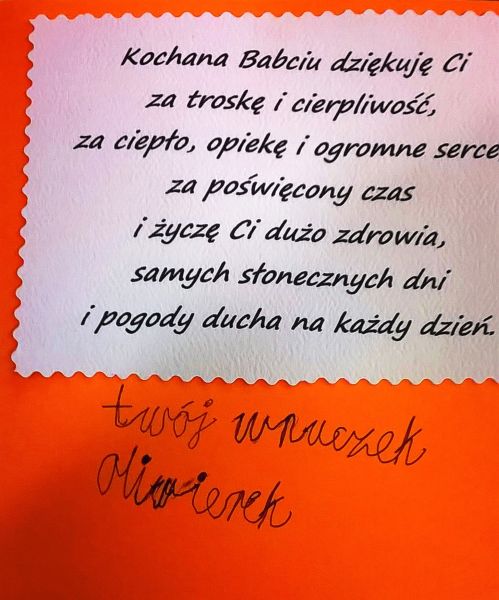 Kochana Babciu dziękuję Ci
za troskę i cierpliwość,
za ciepło, opiekę i ogromne serce
za poświęcony czas
i życzę Ci dużo zdrowia,
samych słonecznych dni
i pogody ducha na każdy dzień.
twój wnuczek
Oliwierek